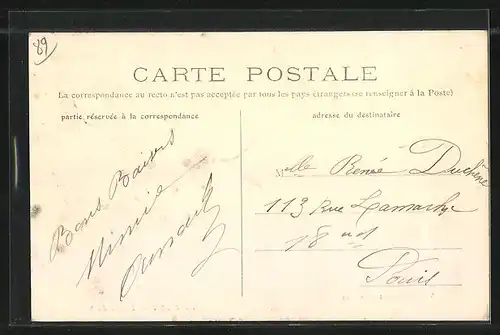 89
CARTE POSTALE
La correspondance au recto n'est pas acceptée par tous les pays étrangers (se renseigner à la Poste)
partie réservée à la correspondance
adresse du destinataire
Bons Baisers
Mimie
Melle Renée Duchêne
113 Rue Lamarck
18
Paris